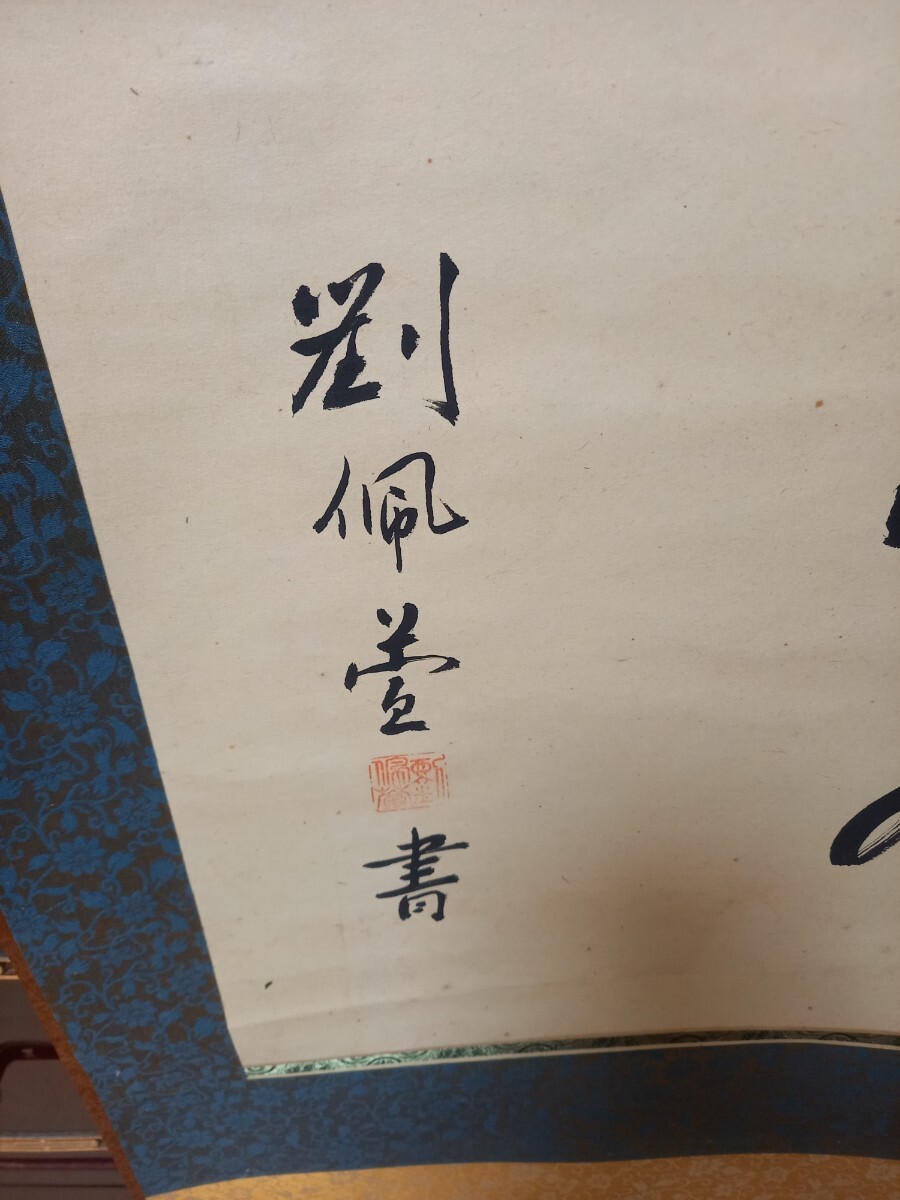 劉佩萱書